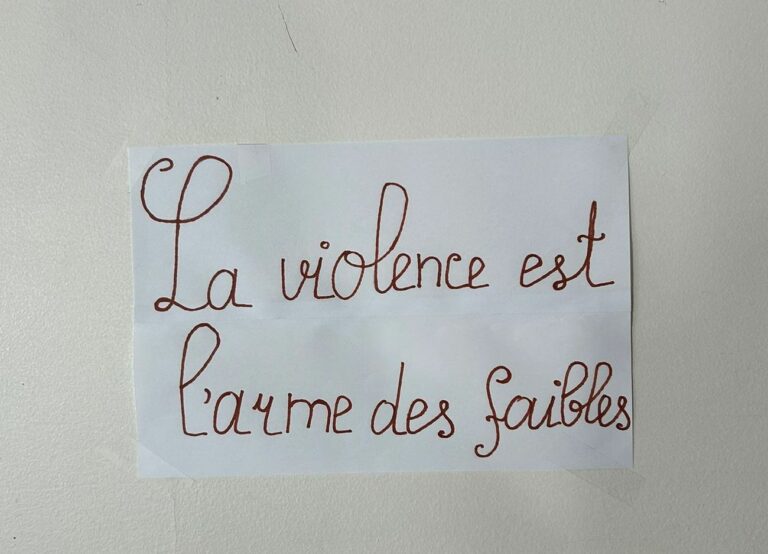 La violence est
l'arme des faibles